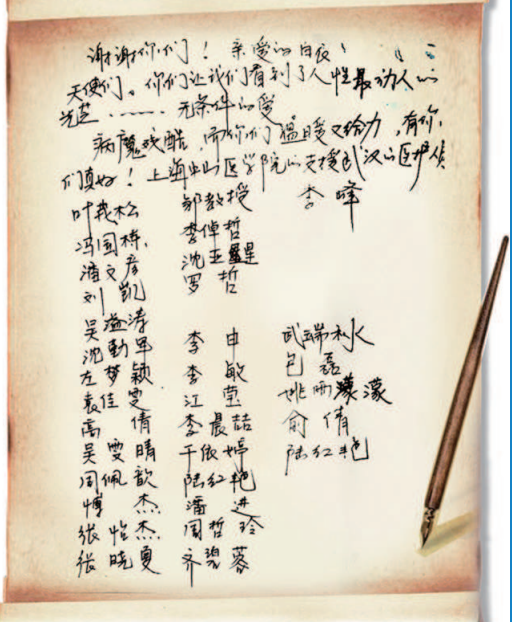 谢谢你们！亲爱的白衣
天使们。你们让我们看到了人性最动人的
光芒……无条件的爱
病魔残酷，而你们温暖又给力，有你
们真好！上海中山医学院的支援武汉的医护侠
李峰
叶茂松
冯国栋
潘文彦
刘凯
吴溢涛
沈勤军
左梦颖
袁佳雯
高倩
吴雯晴
周佩歆
傅杰
张怡杰
张晓夏
邹教授
李倬哲
沈亚星
罗哲
李申
李敏
江莹
李晨喆
于依婷
陆红艳
潘进
周哲玲
齐碧蓉
武瑞秋
包磊
姚雨濛
俞倩
陆红艳